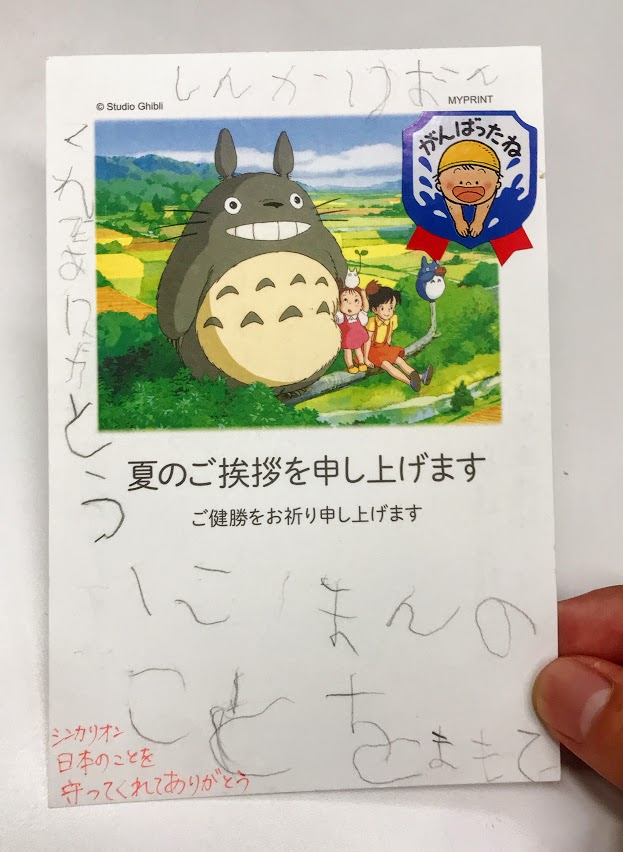 しんかりおん
© Studio Ghibli
MYPRINT
がんばったね
夏のご挨拶を申し上げます
ご健勝をお祈り申し上げます
にほんの
ことをまもて
くれてありがとう
シンカリオン
日本のことを
守ってくれてありがとう